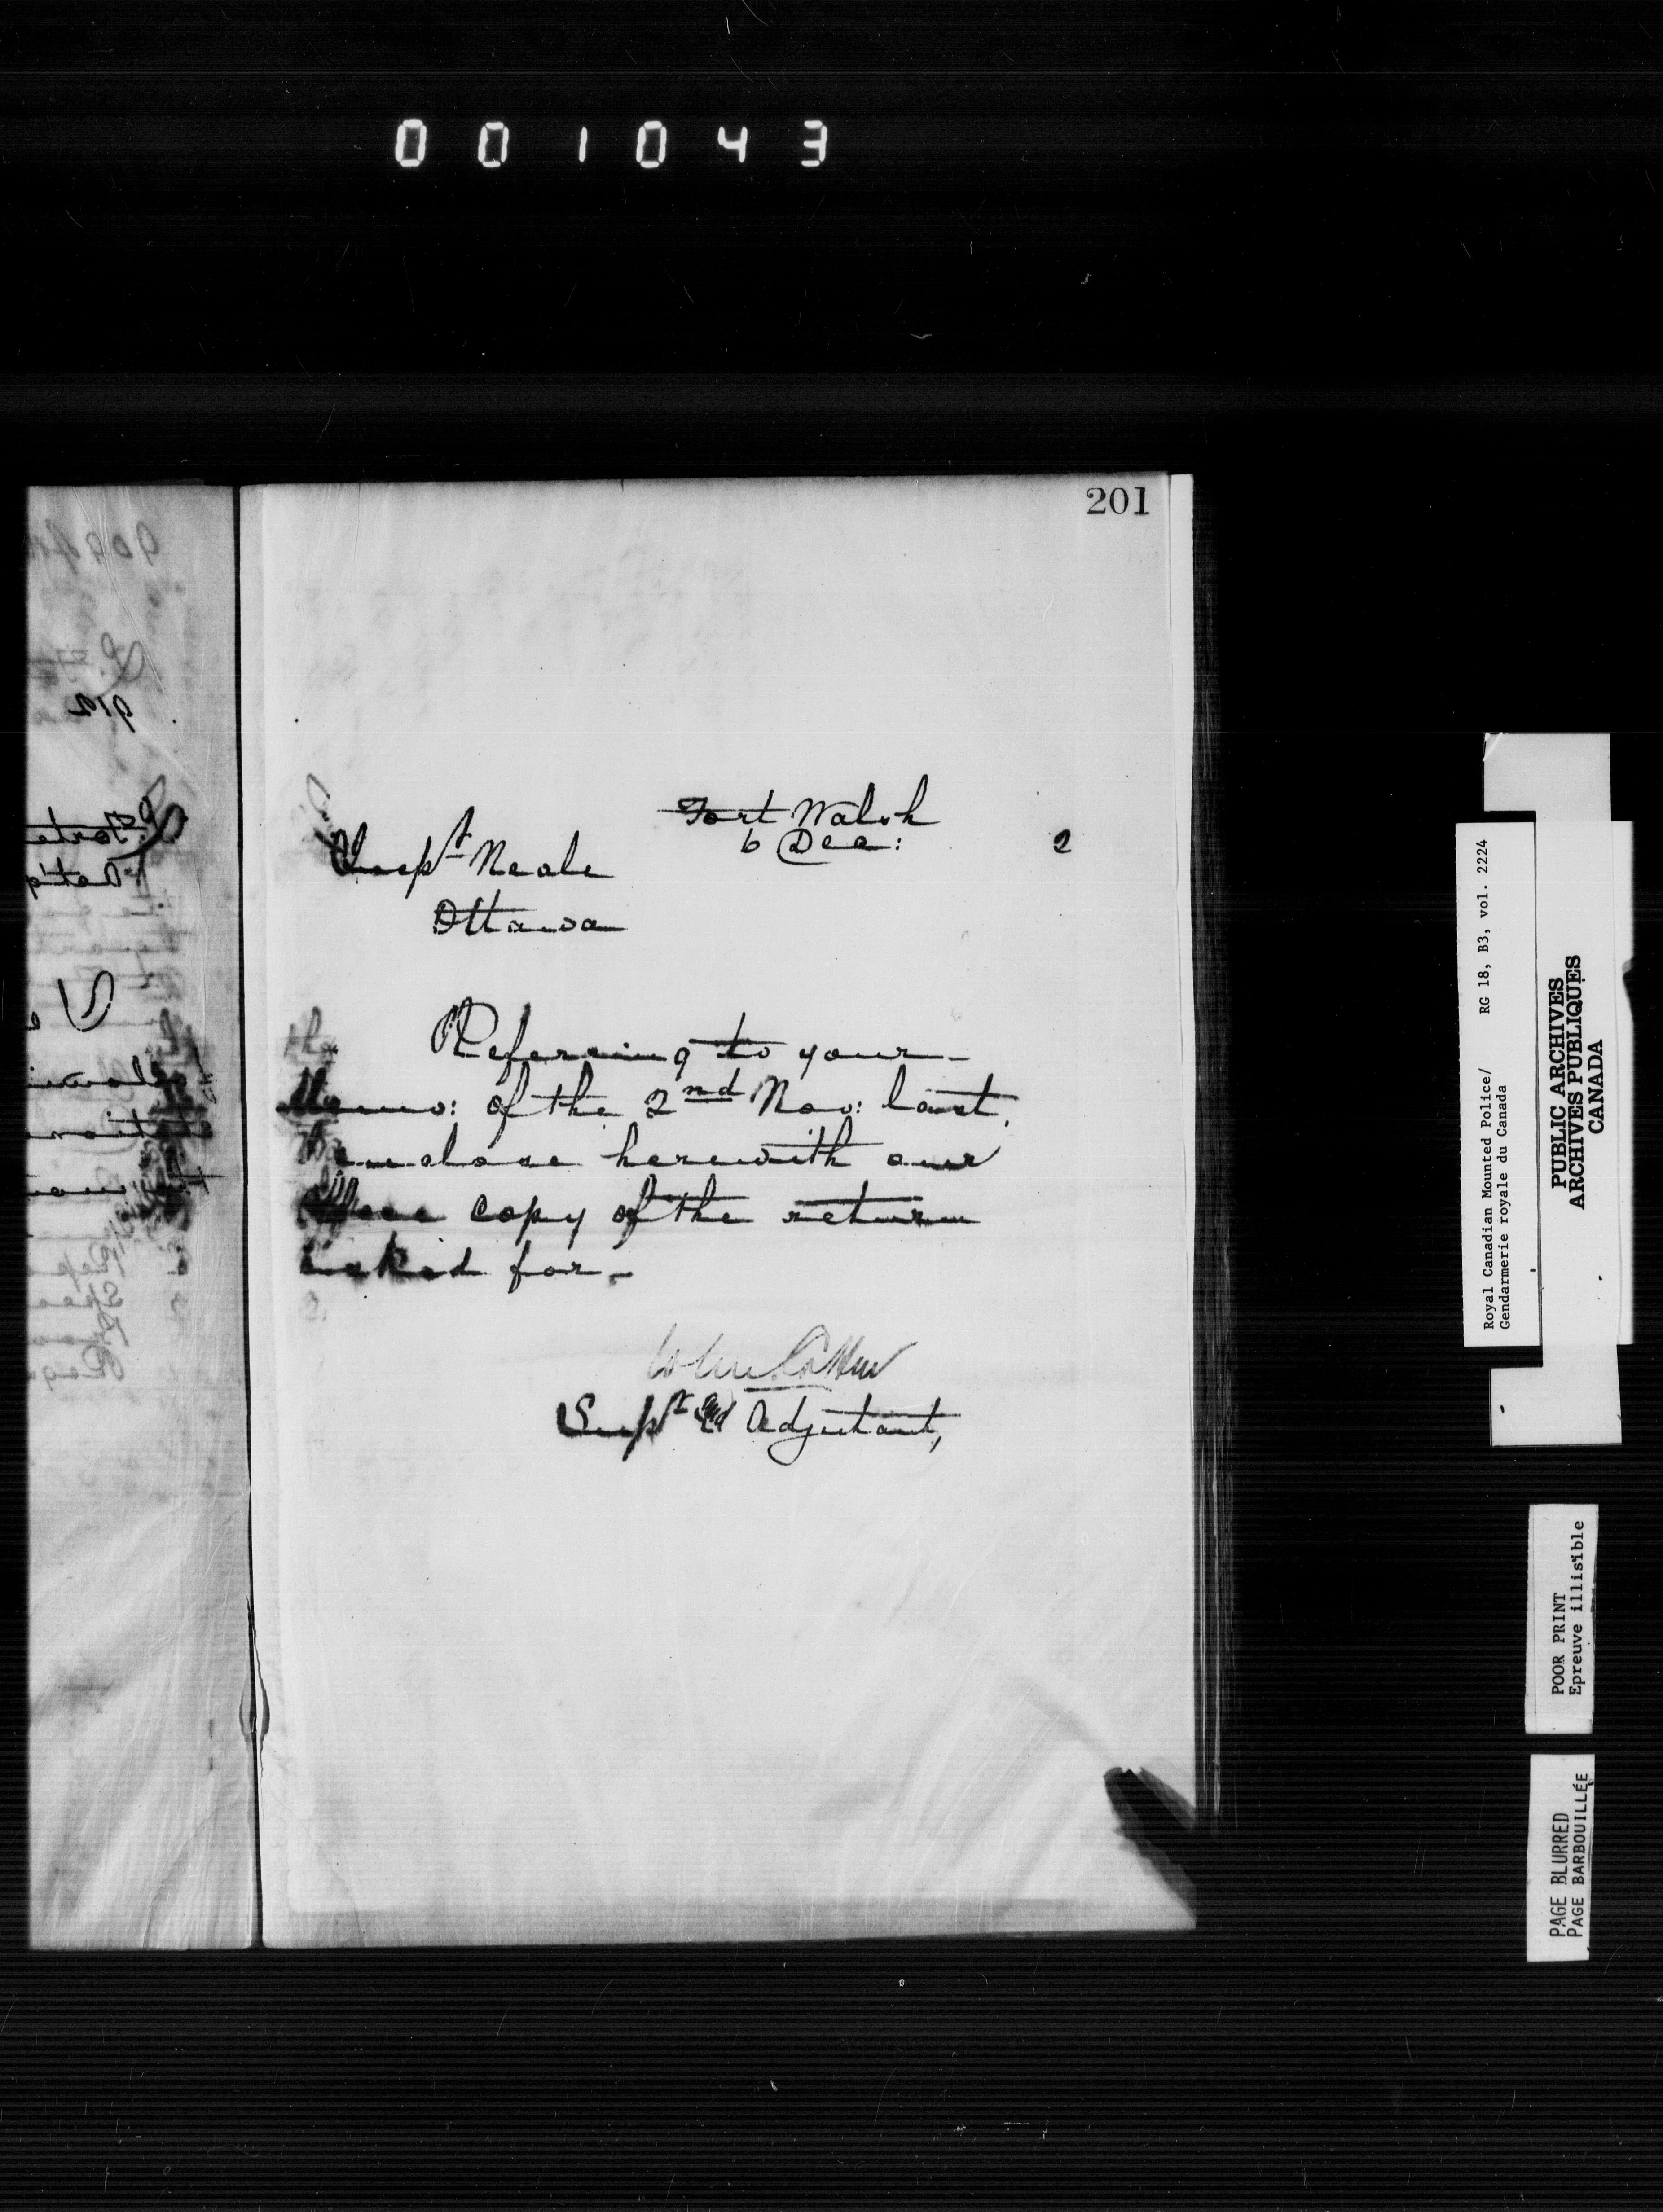 001043
201
Fort Walsh
6 Dec: 2
Insp^t Neale
Ottawa
Referring to your
Memo: of the 2nd Nov: last
enclose herewith our
office copy of the return
asked for -
John Cotton
Sup^t and Adjutant,
Royal Canadian Mounted Police/ RG 18, B3, vol. 2224
Gendarmerie royale du Canada
PUBLIC ARCHIVES
ARCHIVES PUBLIQUES
CANADA
POOR PRINT
Epreuve illisible
PAGE BLURRED
PAGE BARBOUILLÉE